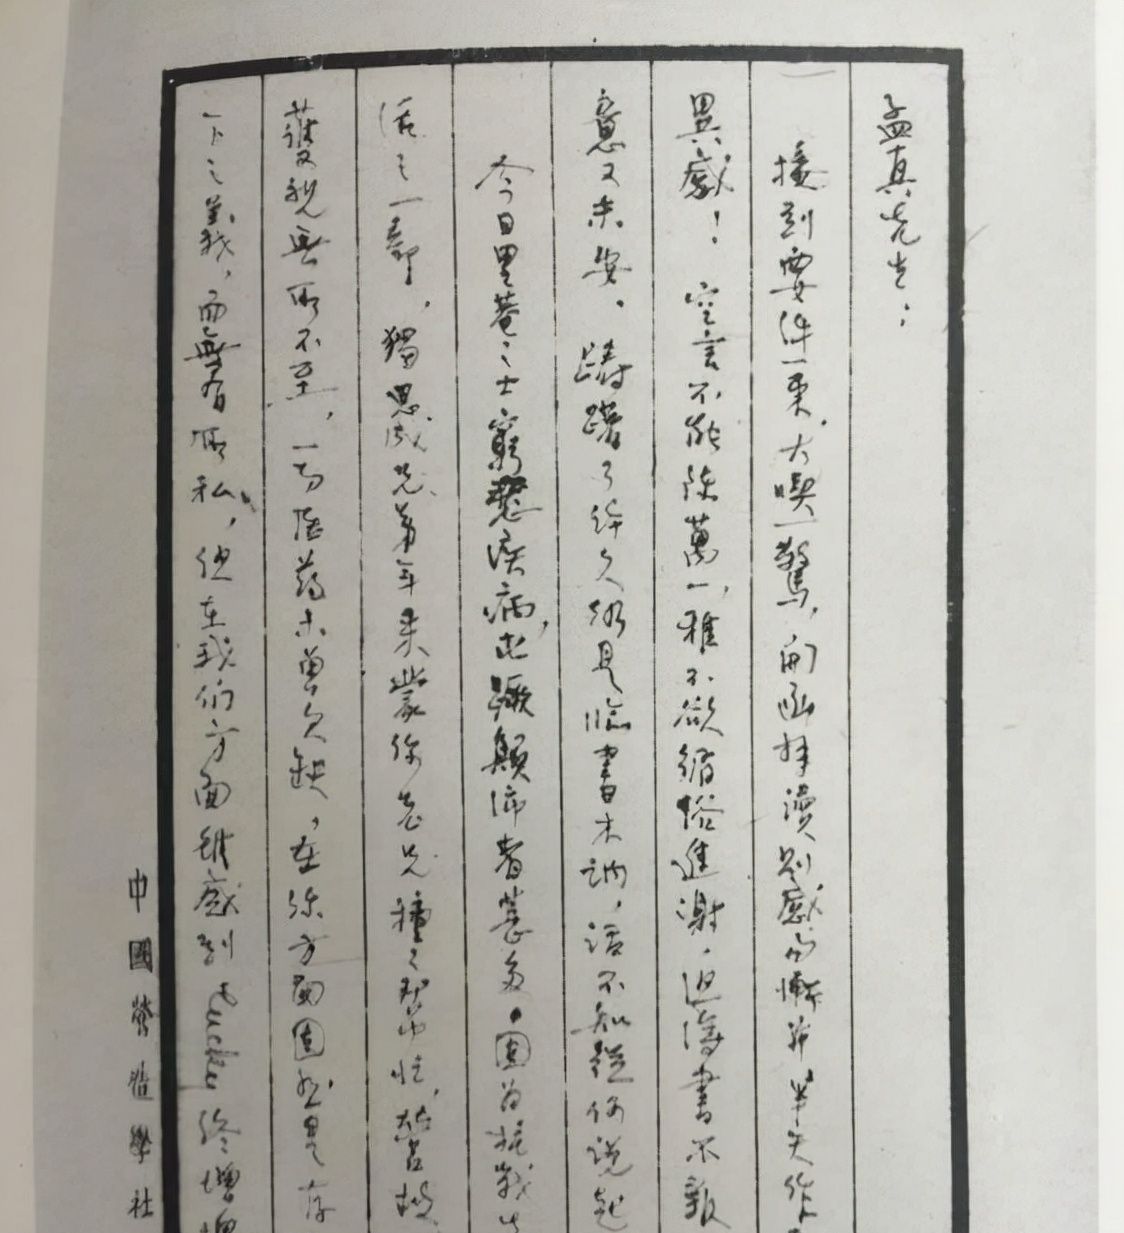 孟真先生：
接到要件一束，大喫一驚，開函拜讀，則感與慚并，半天作
異感！空言不能陳萬一，雅不欲循俗進謝，但得書不報
意又未安。躊躇了許久仍是臨書木訥，話不知從何說起
今日里巷之士窮愁疾病，屯蹶顛沛者甚多。固為抗戰生
活之一部，獨思成兄弟年來蒙你老兄種之幫忙，營救
護視無所不至，一切醫藥未曾欠缺，在你方面固然是存
下之義，而無有所私，但在我們方面雖感到lucky終增愧
中國營造學社